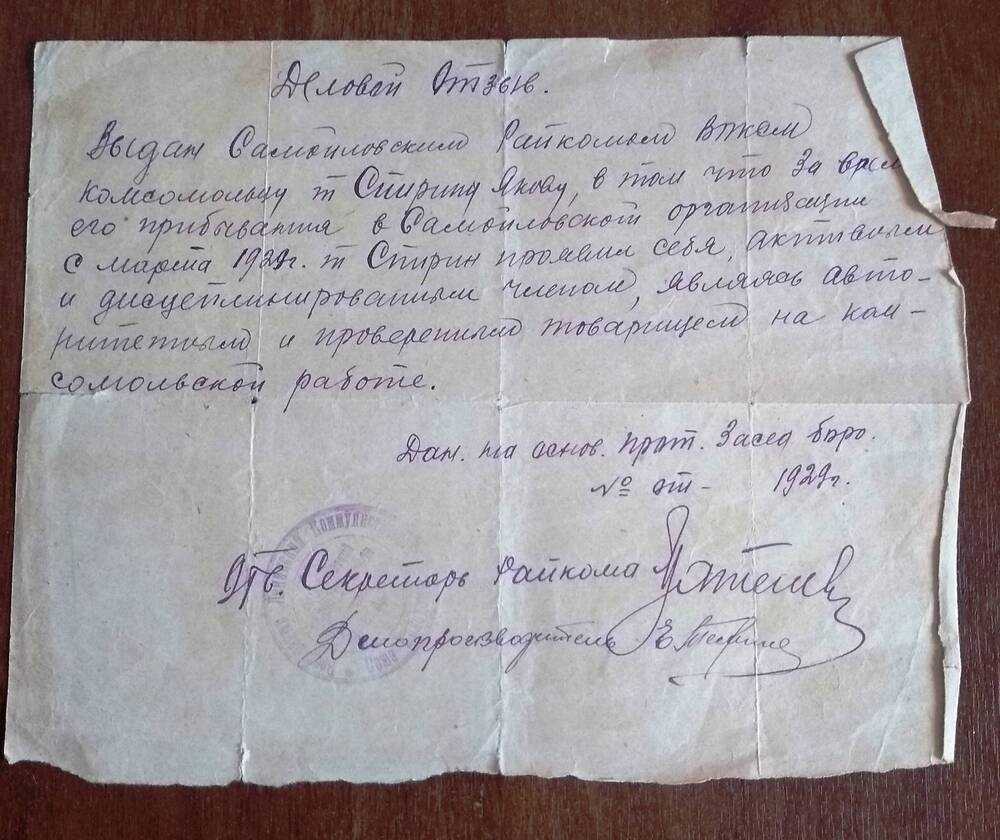 Деловой Отзыв.
Выдан Самойловским Райкомом Влксм
комсомольцу т Спирину Якову, в том что за врем
его прибывания в Самойловской организации
с марта 1929г. т Спирин проявил себя, активным
и дисцеплинированным членом, являясь авто-
ритетным и проверенным товарищем на ком-
сомольской работе.
Дан. на основ. прот. Засед бюро.
№ от - 1929г.
Коммунис
Отв. Секретарь Райкома
Делопроизводитель Е.